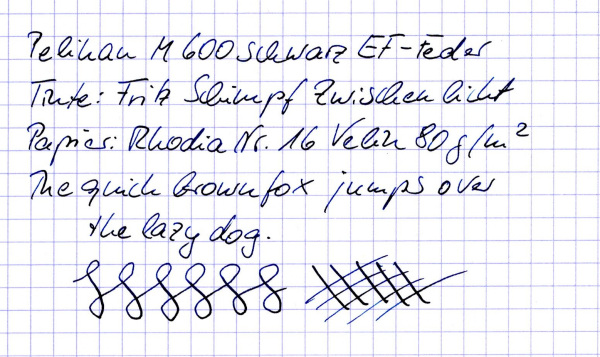 Pelikan M 600 schwarz EF-Feder
Tinte: Fritz Schimpf Zwischenlicht
Papier: Rhodia Nr. 16 Velin 80 g/m²
The quick brown fox jumps over
the lazy dog.